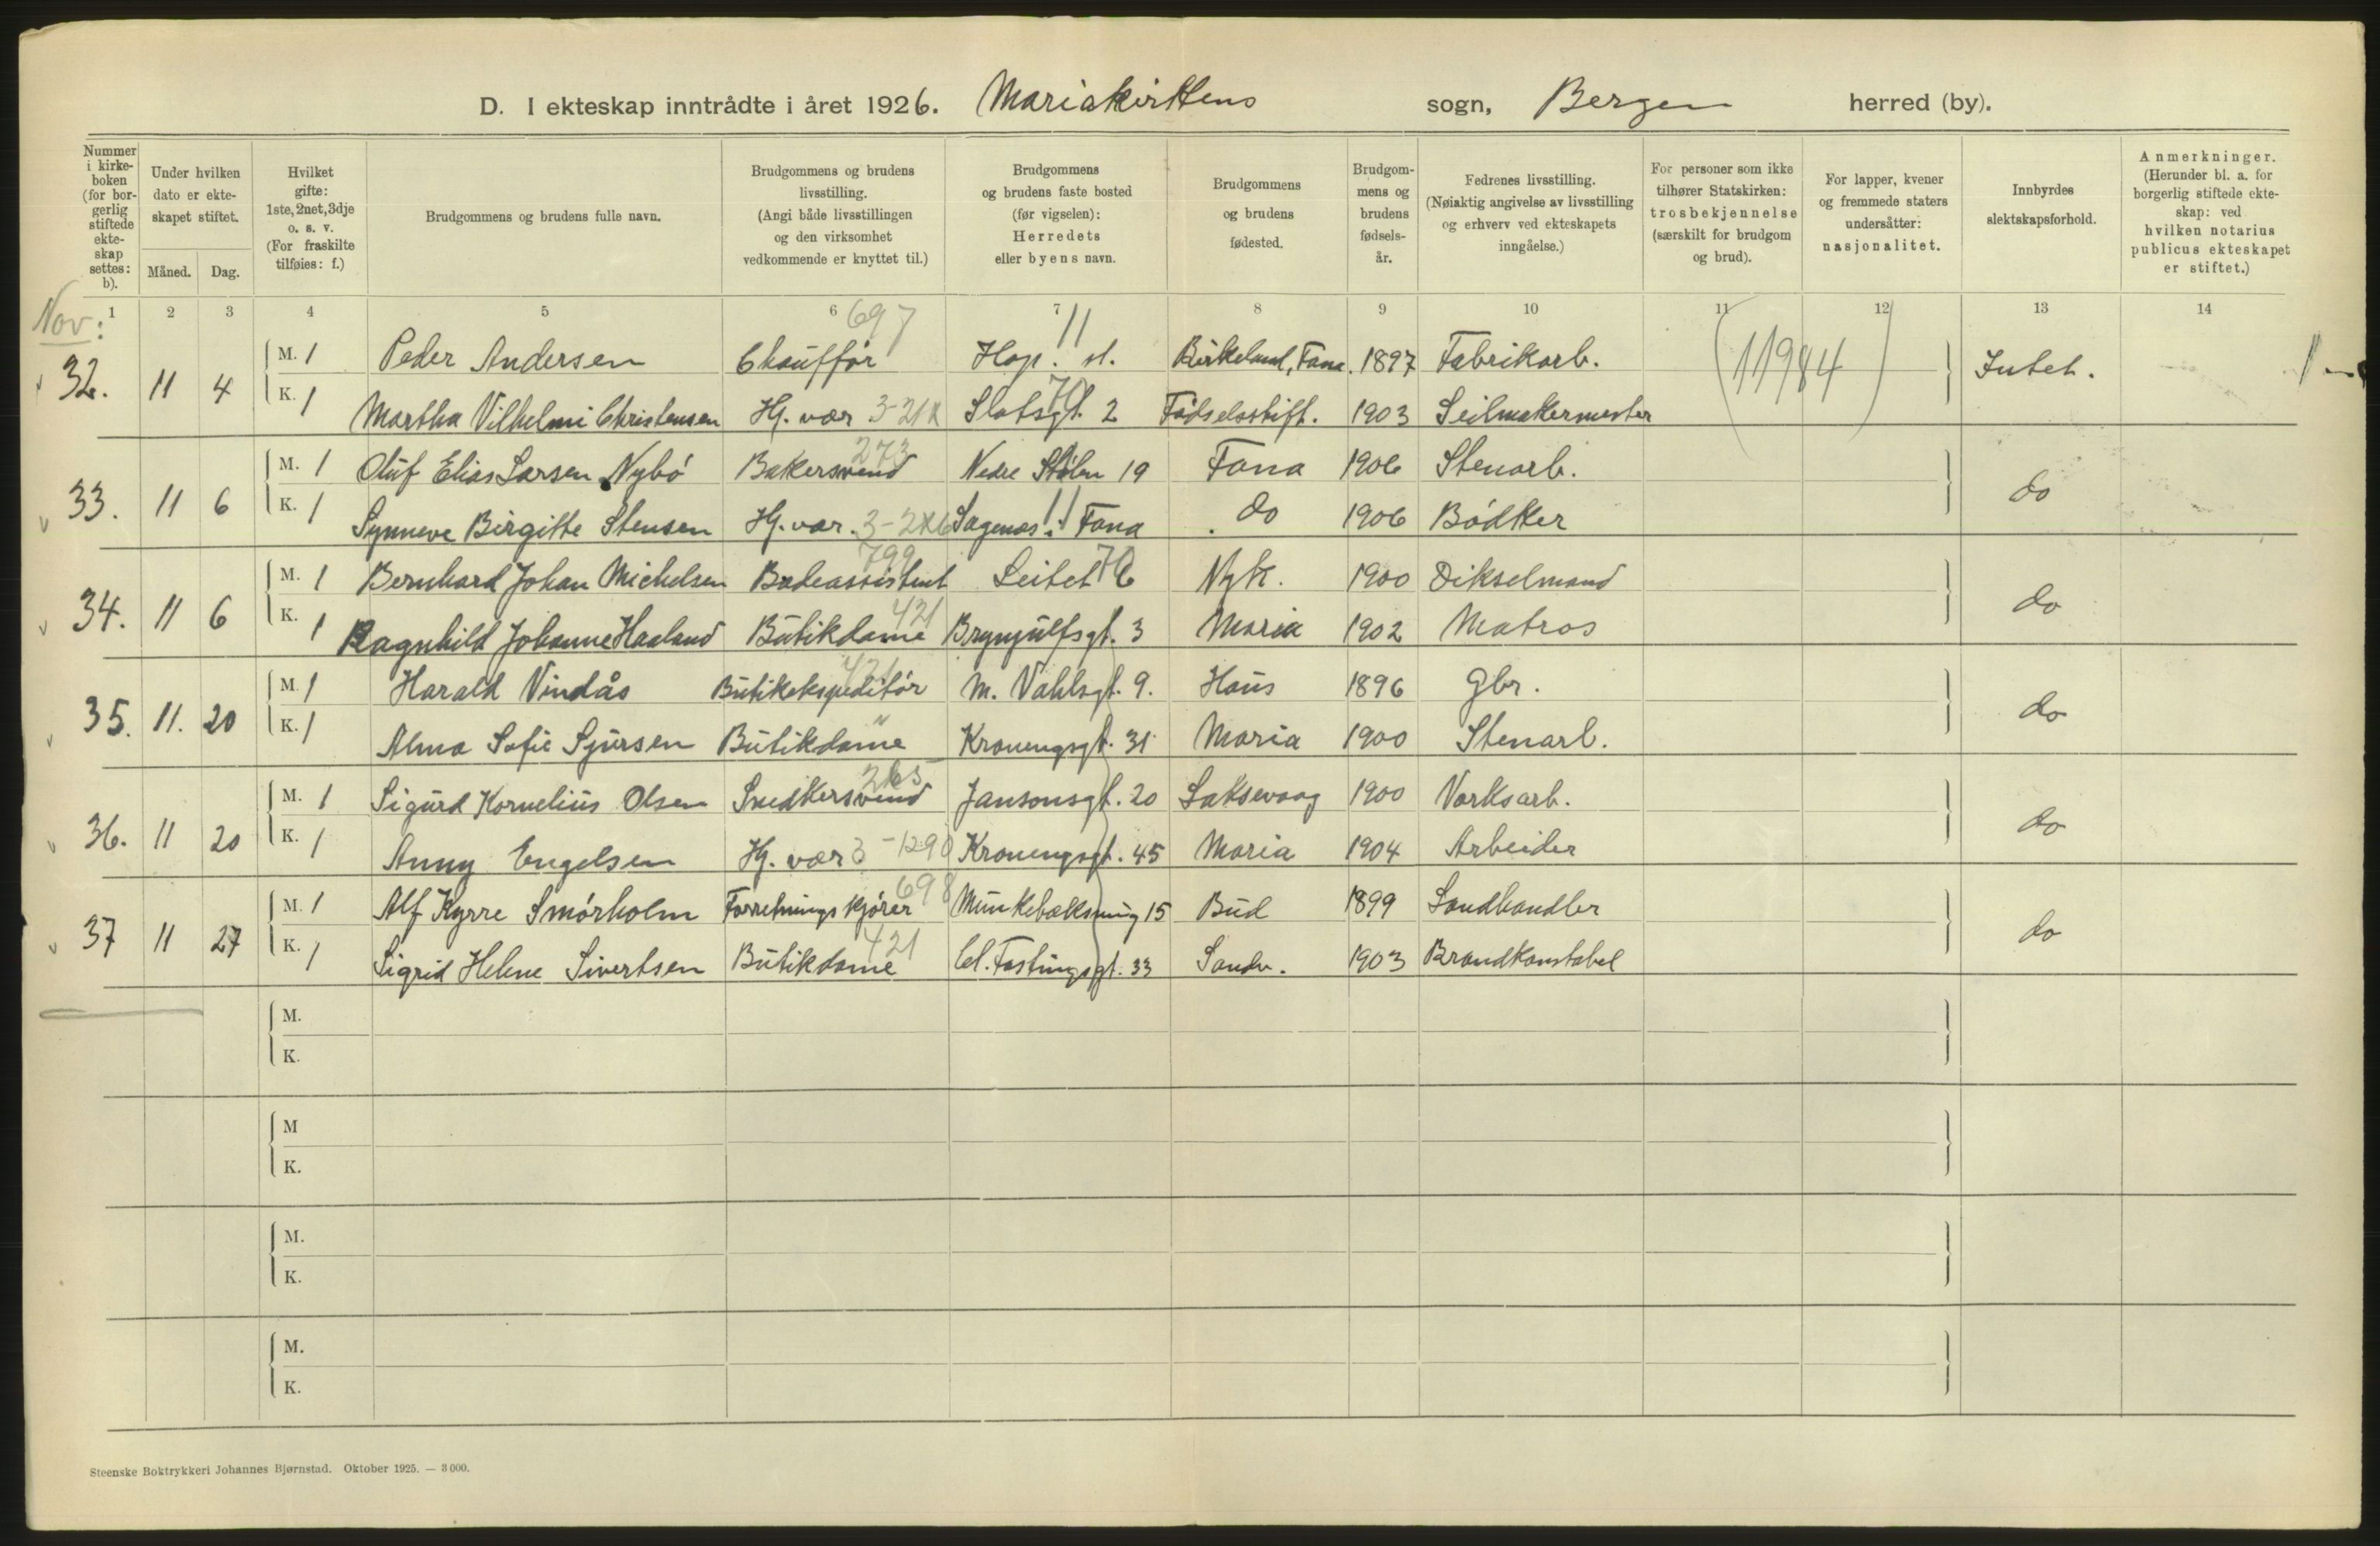 D. I ekteskap inntrådte i året 1926. Mariakirkens sogn, Bergen herred (by).
Nummer i kirkeboken (for borgerlig stiftede ekteskap settes: b).
Under hvilken dato er ekteskapet stiftet.
Måned. Dag.
Hvilket gifte: 1ste, 2net, 3dje o. s. v. (For fraskilte tilføies: f.)
Brudgommens og brudens fulle navn.
Brudgommens og brudens livsstilling. (Angi både livsstillingen og den virksomhet vedkommende er knyttet til.)
Brudgommens og brudens faste bosted (før vigselen): Herredets eller byens navn.
Brudgommens og brudens fødested.
Brudgommens og brudens fødselsår.
Fedrenes livsstilling. (Nøiaktig angivelse av livsstilling og erhverv ved ekteskapets inngåelse.)
For personer som ikke tilhører Statskirken: trosbekjennelse (særskilt for brudgom og brud).
For lapper, kvener og fremmede staters undersåtter: nasjonalitet.
Innbyrdes slektskapsforhold.
Anmerkninger. (Herunder bl. a. for borgerlig stiftede ekteskap: ved hvilken notarius publicus ekteskapet er stiftet.)
1 2 3 4 5 6 7 8 9 10 11 12 13 14
Nov: 697 11
32. 11 4 M. 1 Peder Andersen Chauffør Hop. st. Birkeland, Fana. 1897 Fabrikarb. (11984) Intet.
K. 1 Martha Vilhelmi Christensen Hj. vær 3-21 Slotsgt. 2 Fødselsstift. 1903 Seilmakermester
273
33. 11 6 M. 1 Oluf Elias Larsen Nybø Bakersvend Nedre Stølen 19 Fana 1906 Stenarb. do
K. 1 Synneve Birgitte Stensen Hj. vær. 3-2 Sagenæs i Fana do 1906 Bødker
799
34. 11 6 M. 1 Bernhard Johan Michelsen Badeassistent Leitet 6 Nyk. 1900 Dikselmand do
421
K. 1 Ragnhild Johanne Haaland Butikdame Brynjulfsgt. 3 Maria 1902 Matros
421
35. 11. 20 M. 1 Harald Vindås Butikekspeditør M. Vahlsgt. 9. Haus 1896 Gbr. do
K. 1 Alma Sofie Sjursen Butikdame Kronengsgt. 31 Maria 1900 Stenarb.
265
36. 11 20 M. 1 Sigurd Kornelius Olsen Snedkersvend Jansonsgt. 20 Laksevaag 1900 Verksarb. do
K. 1 Anny Engelsen Hj. vær 3-1290 Kronengsgt. 45 Maria 1904 Arbeider
698
37 11 27 M. 1 Alf Kyrre Smørholm Forretningskjører Munkebæksmug 15 Bud 1899 Landhandler do
421
K. 1 Sigrid Helene Sivertsen Butikdame Cl. Fastingsgt. 33 Sandv. 1903 Brandkonstabel
M.
K.
M
K.
M.
K.
M.
K.
Steenske Boktrykkeri Johannes Bjørnstad. Oktober 1925. — 3 000.